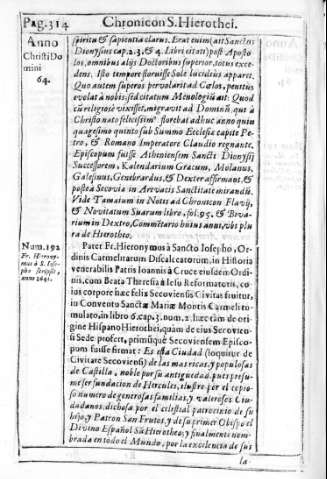 Pag. 314 Chronicon S. Hierothei.
Anno
Christi Do
mini
64.
spiritu & sapientia clarus. Erat enim (ait Sanctus
Dionysius cap. 2. 3. & 4. Libri citati) post Aposto
los, omnibus alijs Doctoribus superior, totus exce
dens. Isto tempore floruisse Sole lucidius apparet.
Quo autem superos pervolarit ad Cælos, penitus
evolat à nobis, sid citatum Menologiũ ait: Quod
cũ religiosè vixisset, migravit ad Dominũ, qui à
Christo nato felicissimè florebat adhuc anno quin
quagesimo quinto sub Summo Ecclesiæ capite Pe-
tro, & Romano Imperatore Claudio regnante.
Episcopum fuisse Atheniensem Sancti Dionysij
Successorem, Kalendarium Græcum, Molanus,
Galesinus, Genebrardus, & Dexter affirmant, &
postea Segovia in Arevacis Sanctitate mirandũ.
Vide Tamatum in Notis ad Chronicon Flavij,
& Novitatum Suarum libro, fol. 95. & Breva-
rium in Dextro, Commētario huius anni, vbi plu
ra de Hierotheo.
Num. 192
Fr. Hierony-
mus à S. Iose-
pho scripsit,
anno 1641.
Pater Fr. Hieronymus à Sancto Iosepho, Or-
dinis Carmelitarum Discalceatorum, in Historia
venerabilis Patris Ioannis à Cruce eiusdem Ordi-
nis, cum Beata Theresa à Iesu Reformatoris, co
ius corpore hæc felix Secoviensis Civitas fruitur,
in Conventu Sanctæ Mariæ Montis Carmeli tu-
mulato, in libro 6. cap. 3. num. 2. hæc tàm de ori-
gine Hispano Hierothei, quàm de eius Secovien-
si Sede profert, primũque Secoviensem Episco-
pum fuisse firmat: Es esta Ciudad (loquitur de
Civitate Secoviensi) de las mas ricas, y populosas
de Castilla, noble por su antiguedad, pues presu-
me ser fundacion de Hercules, ilustre por el copio
so numero de generosas familias, y valerosos Ciu-
dadanos, dichosa por el celestial patrocinio de su
hijo, y Patron San Frutos, y de su primer Obispo el
Divino Español Sã Hierotheo; y finalmente nom-
brada en todo el Mundo, por la excelencia de sus
la